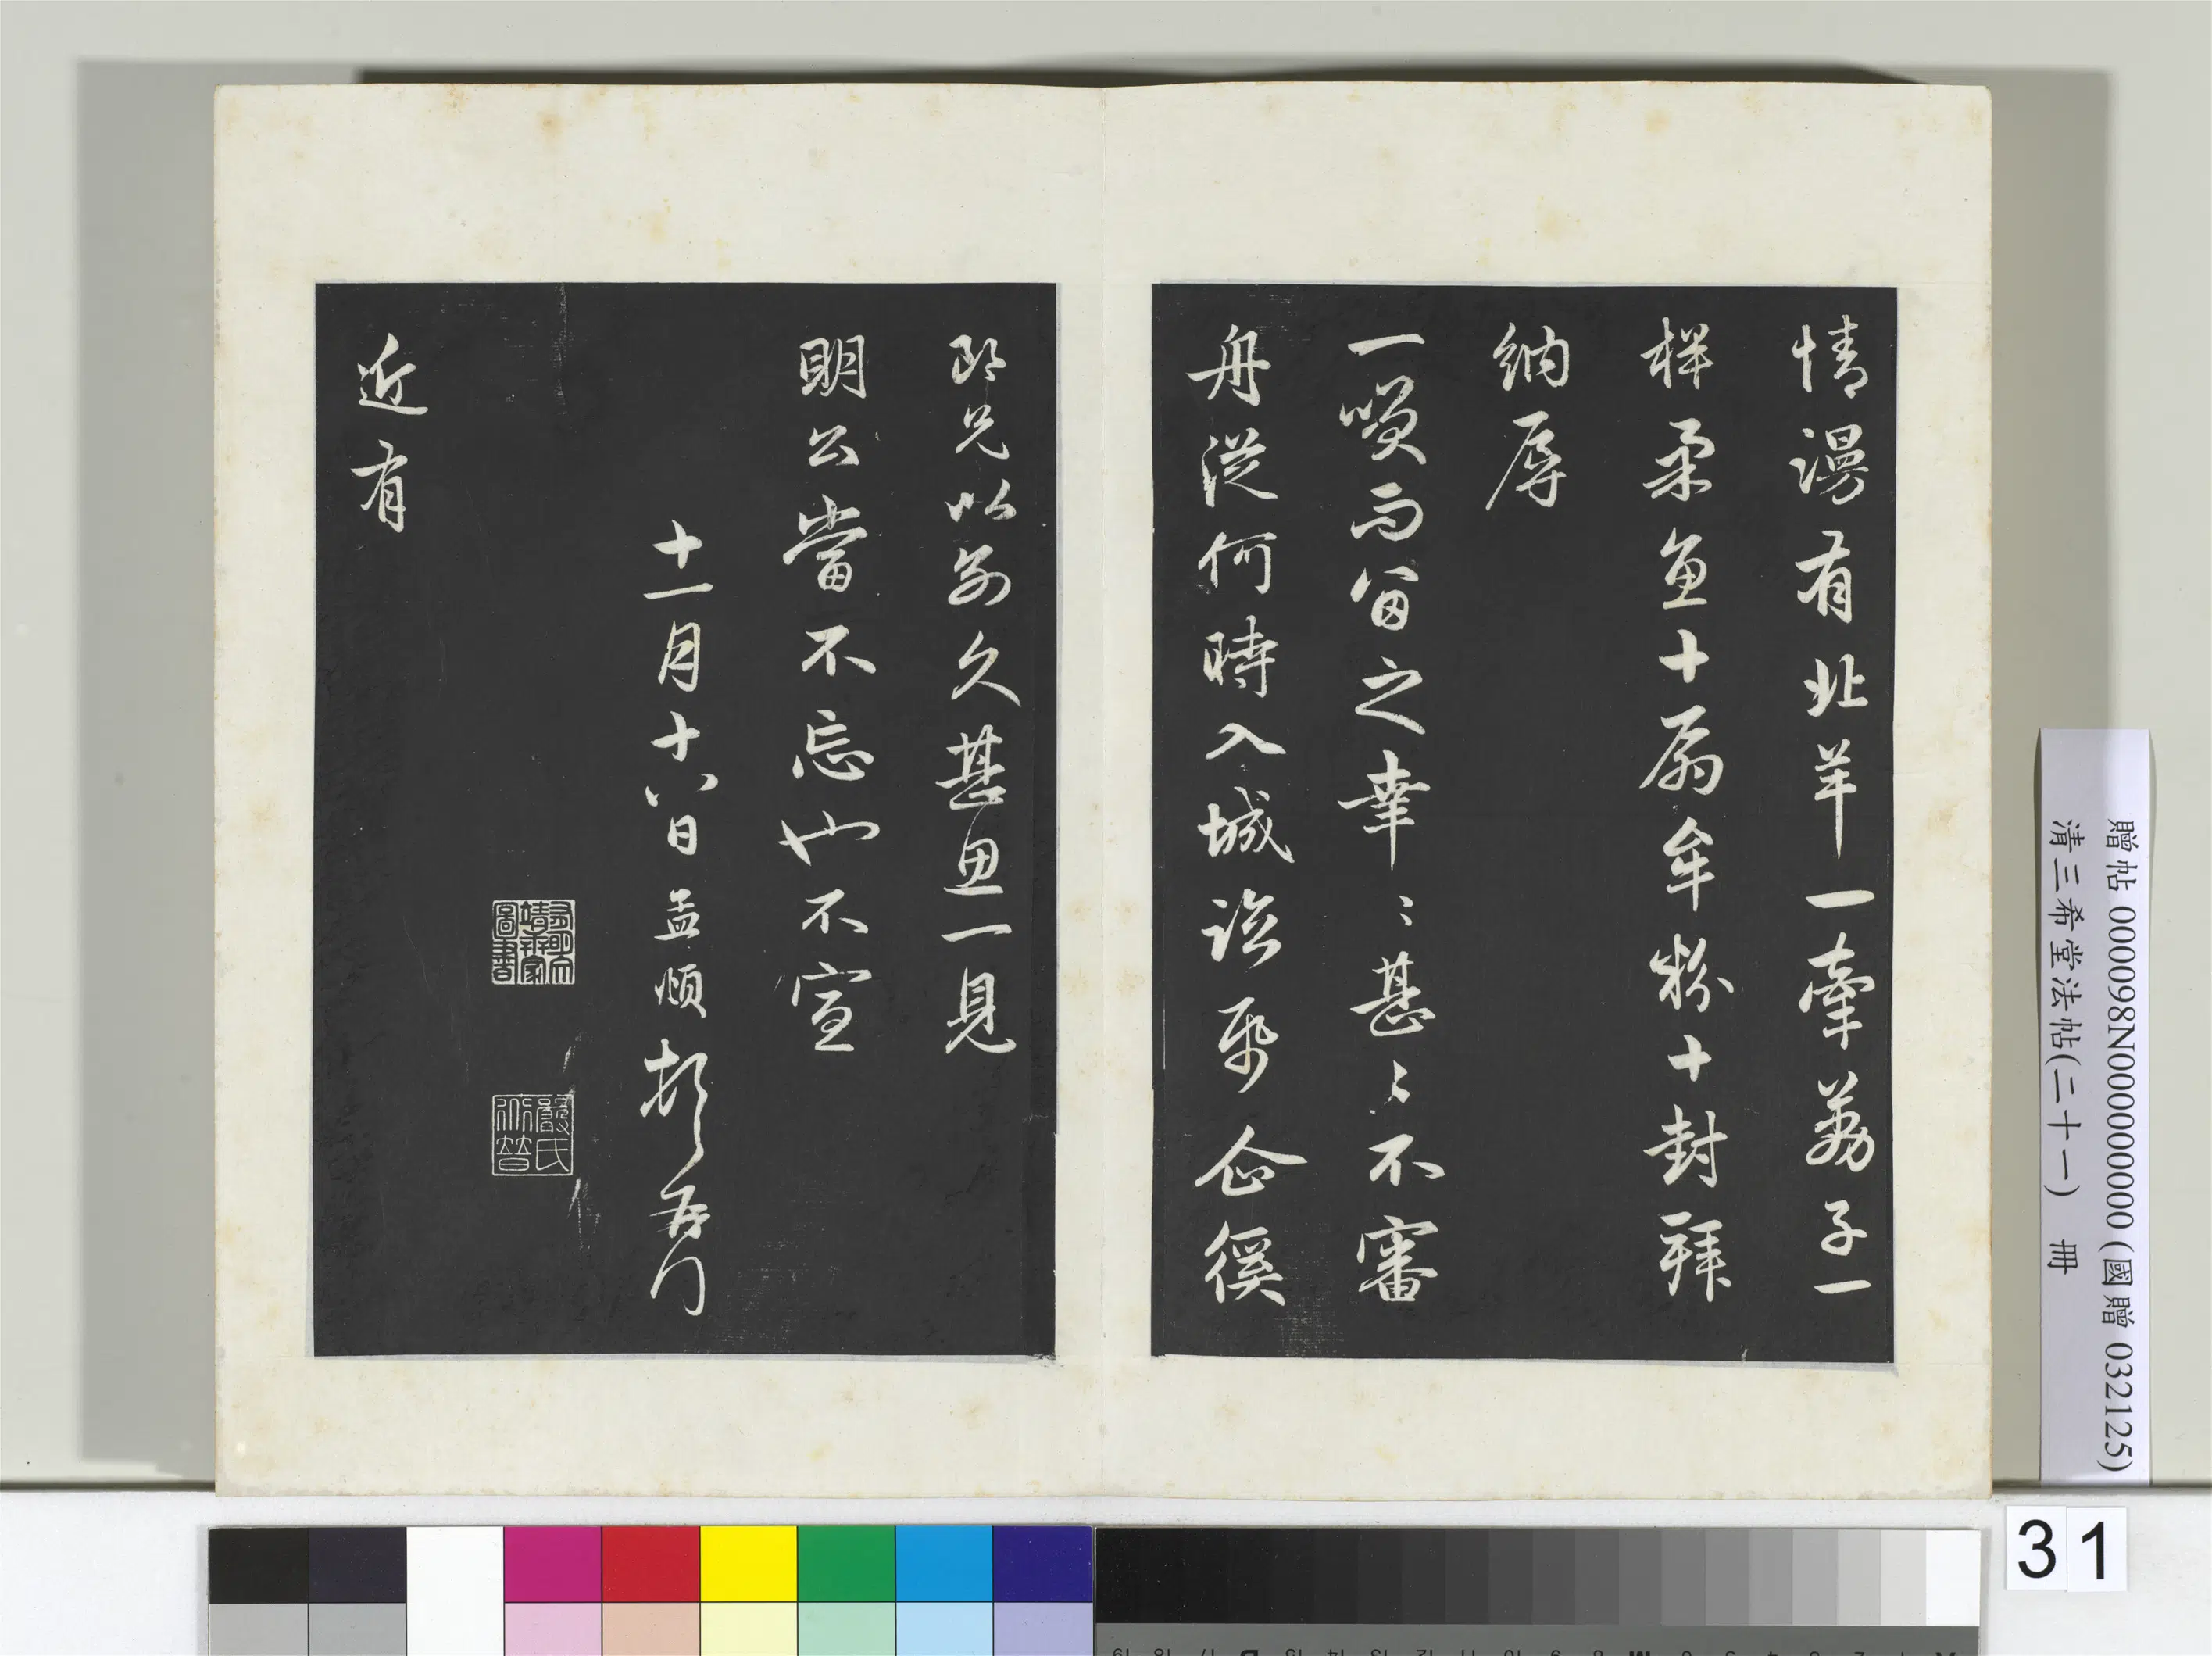 情謾有北羊一牽荔子一
样柔魚十扇牟粉十封拜
納辱
一咲而留之幸〻甚〻不審
舟從何時入城企徯
郎兄以別久甚思一見
明公當不忘也不宣
十一月十八日孟頫頓首
近有
贈帖 000098N000000000 (國贈 032125)
清三希堂法帖(二十一) 冊
31